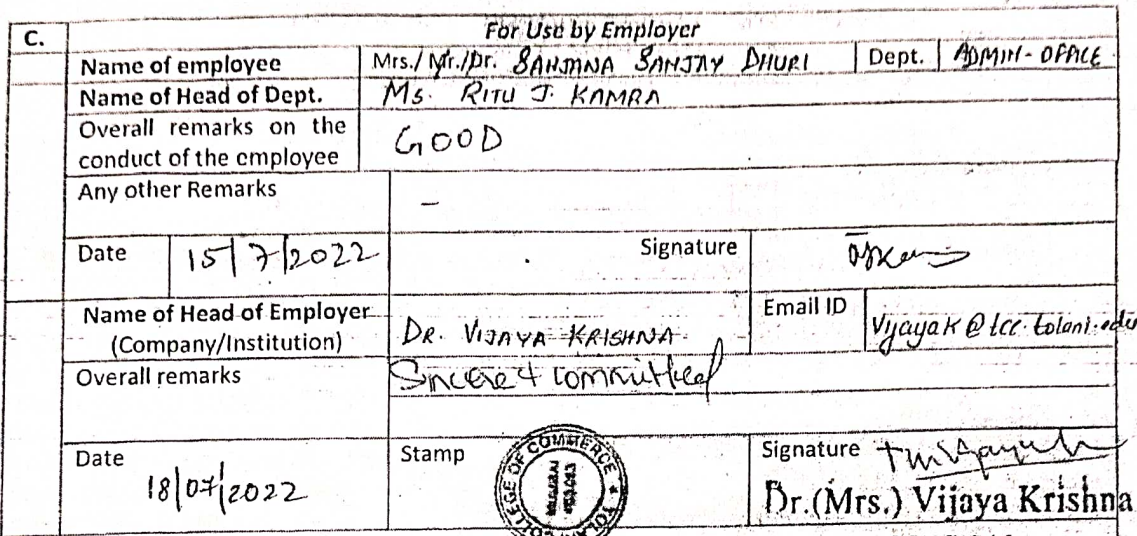 C. For Use by Employer
Name of employee Mrs./Mr./Dr. SANJANA SANJAY DHURI Dept. ADMIN-OFFICE
Name of Head of Dept. Ms. RITU J. KAMRA
Overall remarks on the
conduct of the employee GOOD
Any other Remarks –
Date 15/7/2022 Signature
Name of Head of Employer
(Company/Institution) DR. VIJAYA KRISHNA. Email ID Vijayak@tcc.tolani.edu
Overall remarks Sincere & committed
Date 18/07/2022 Stamp COLLEGE OF COMMERCE Signature
Dr.(Mrs.) Vijaya Krishna